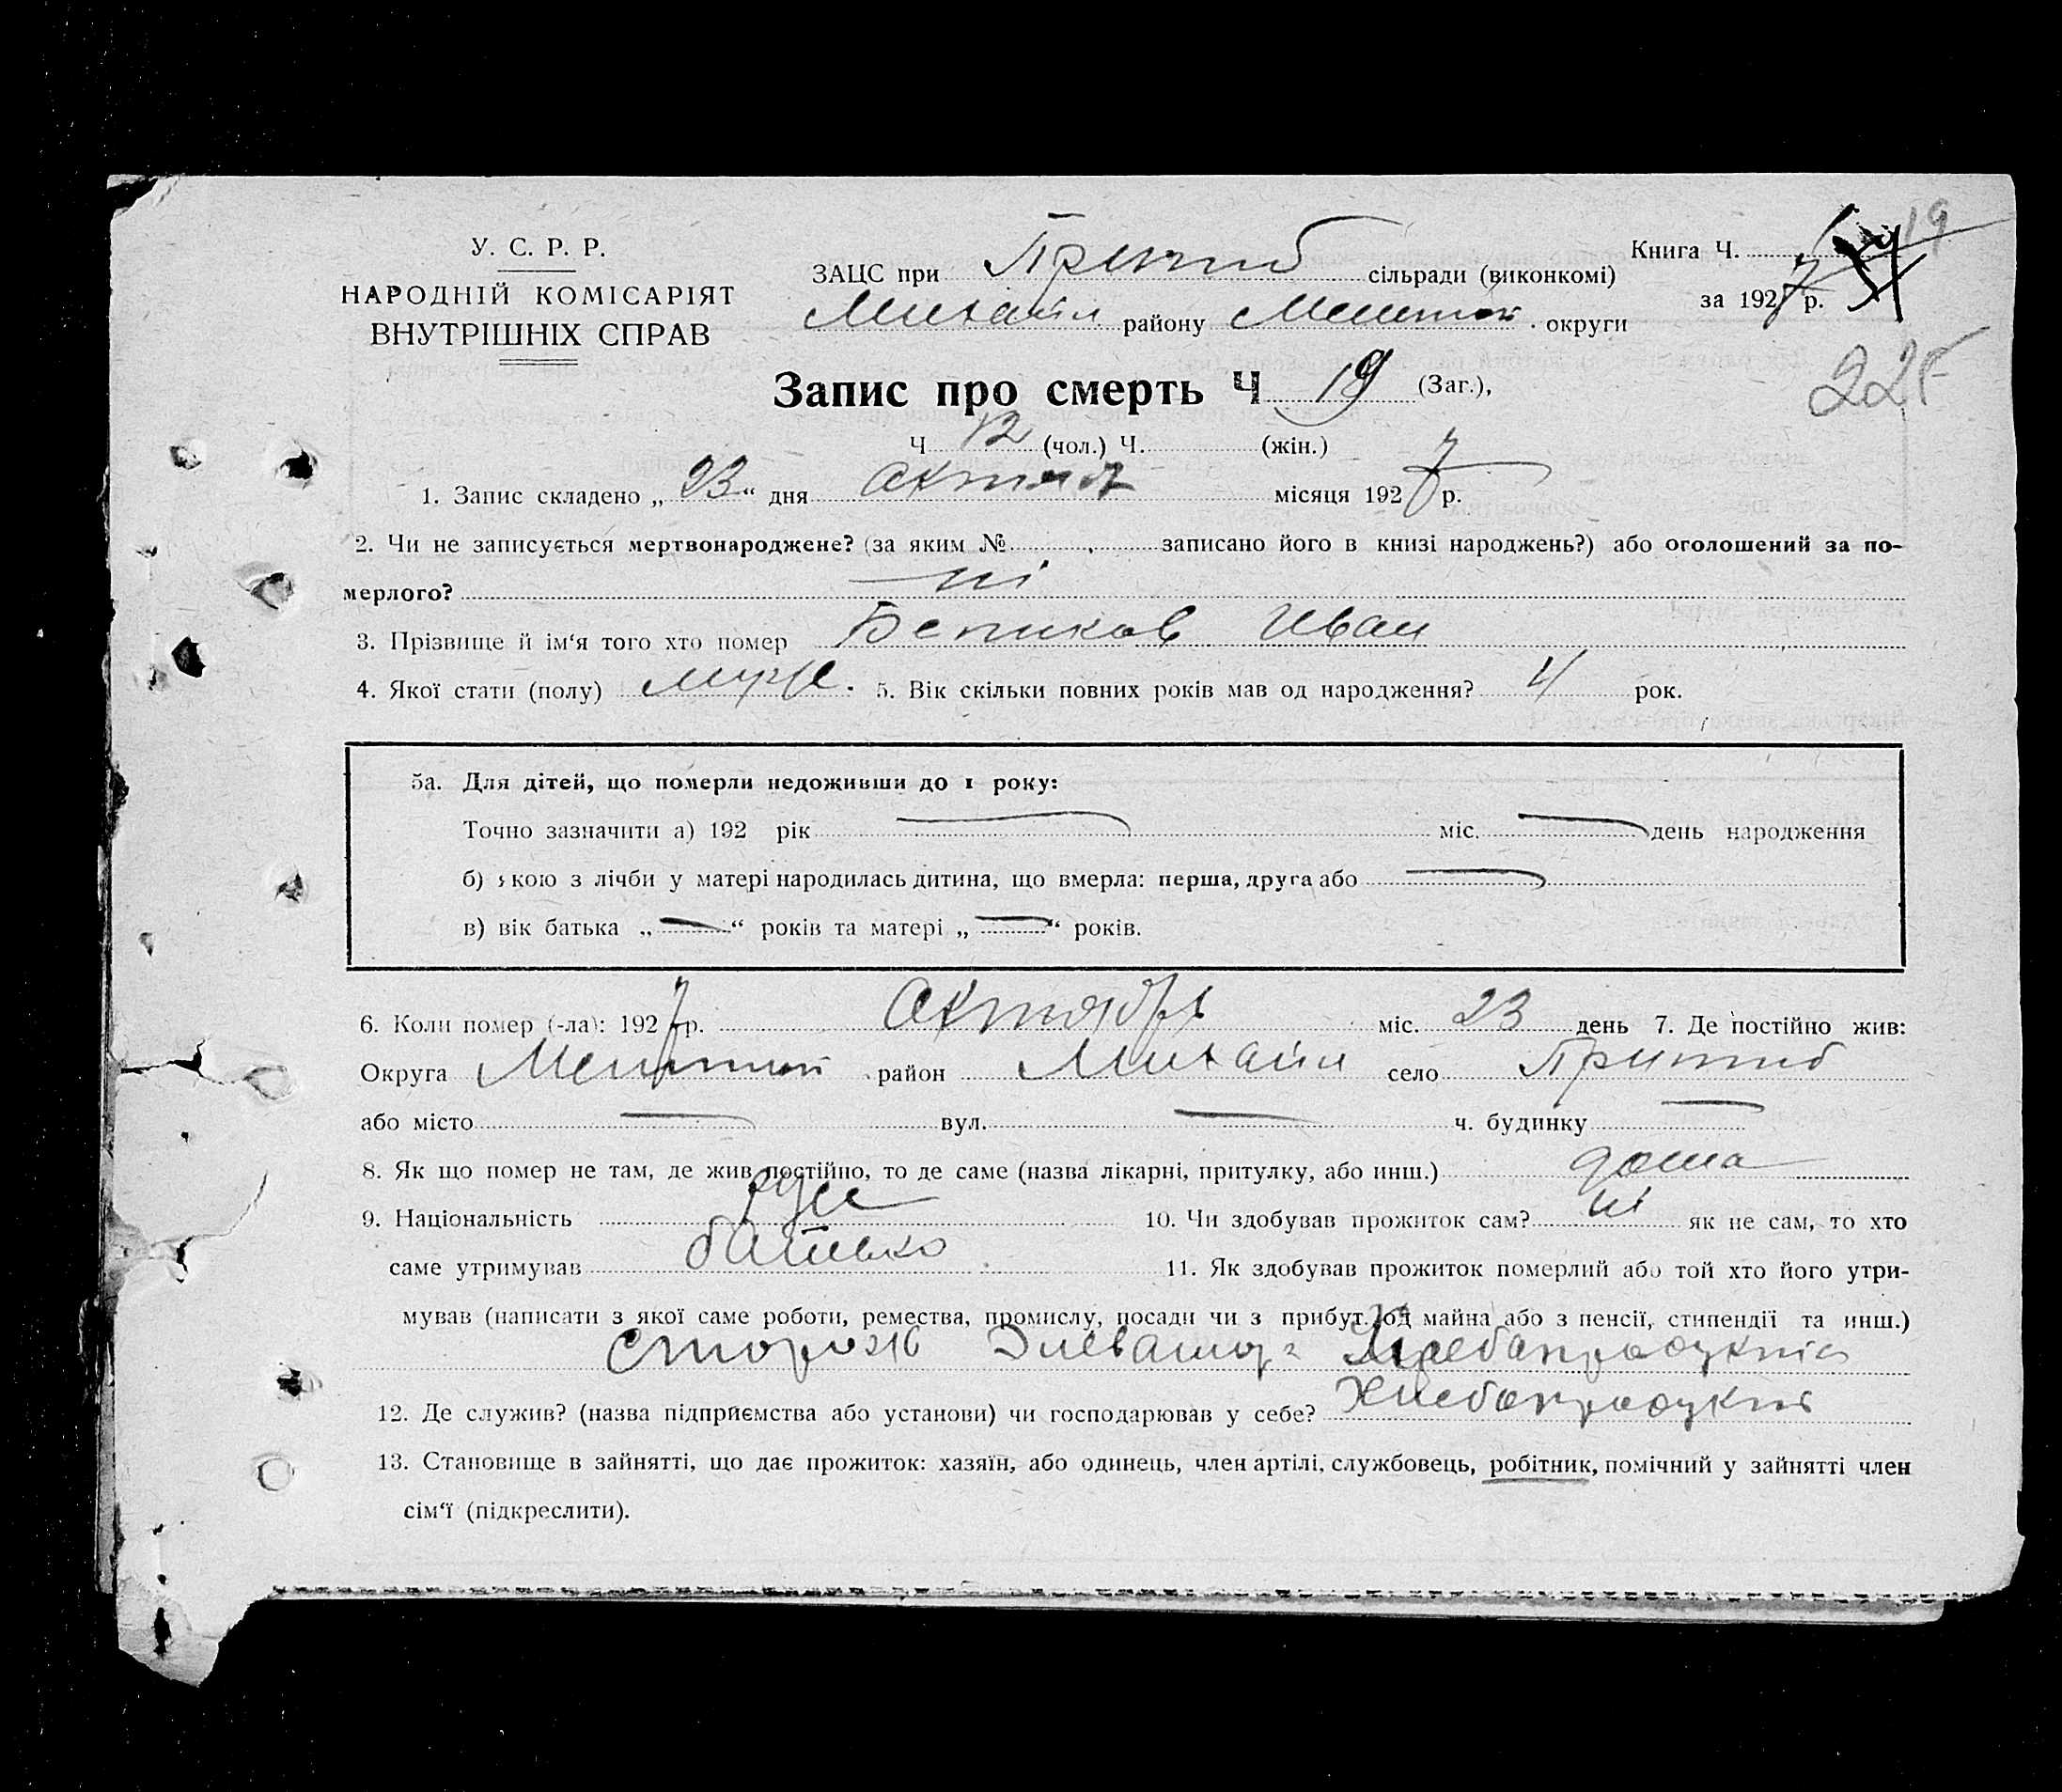 У. С. Р. Р.
НАРОДНІЙ КОМІСАРІЯТ
ВНУТРІШНІХ СПРАВ
ЗАЦС при Пришиб сільради (виконкомі)
Михайл району Мелитоп. округи
Книга Ч. 19
за 1927 р.
225
Запис про смерть Ч 19 (Заг.),
Ч 12 (чол.) Ч. (жін.)
1. Запис складено „ 23 “ дня октяб місяця 1927 р.
2. Чи не записується мертвонароджене? (за яким № записано його в книзі народжень?) або оголошений за по-
мерлого? ні
3. Прізвище й ім‘я того хто помер Беликов Иван
4. Якої стати (полу) муж. 5. Вік скільки повних років мав од народження? 4 рок.
5а. Для дітей, що померли недоживши до 1 року:
Точно зазначити а) 192 рік — міс. — день народження
б) якою з лічби у матері народилась дитина, що вмерла: перша, друга або —
в) вік батька „ — “ років та матері „ — “ років.
6. Коли помер (-ла): 1927 р. Октябрь міс. 23 день 7. Де постійно жив:
Округа Мелитоп район Михайл село Пришиб
або місто — вул. — ч. будинку —
8. Як що помер не там, де жив постійно, то де саме (назва лікарні, притулку, або инш.) дома
9. Національність рус 10. Чи здобував прожиток сам? ні як не сам, то хто
саме утримував батько 11. Як здобував прожиток померлий або той хто його утри-
мував (написати з якої саме роботи, ремества, промислу, посади чи з прибут. од майна або з пенсії, стипендії та инш.)
сторож Элеватора Хлебопродуктів
12. Де служив? (назва підприємства або установи) чи господарював у себе? Хлебопродуктів
13. Становище в зайнятті, що дає прожиток: хазяїн, або одинець, член артілі, службовець, робітник, помічний у зайнятті член
сім‘ї (підкреслити).